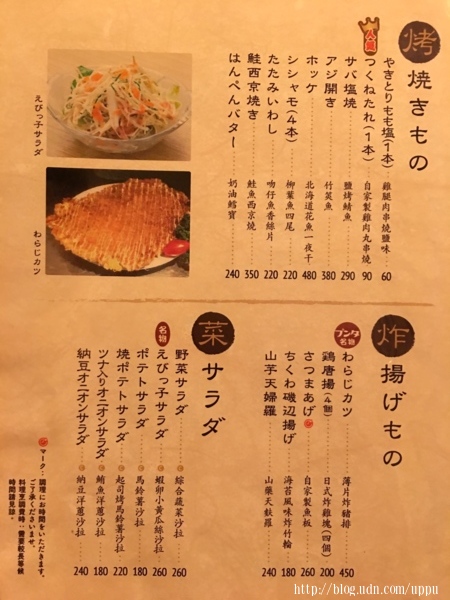 烤
焼きもの
人氣
やきとりもも塩(1本) 雞腿肉串燒鹽味 60
つくねたれ(1本) 自家製雞肉丸串燒 90
サバ塩焼 鹽烤鯖魚 290
アジ開き 竹筴魚 380
ホッケ 北海道花魚一夜干 480
シシャモ(4本) 柳葉魚四尾 220
たたみいわし 吻仔魚香絲片 220
鮭西京焼き 鮭魚西京燒 350
はんぺんバター 奶油鱈寶 240
えびっ子サラダ
わらじカツ
炸
揚げもの
ブンタ名物
わらじカツ 薄片炸豬排 450
鶏唐揚(4個) 日式炸雞塊(四個) 200
さつまあげ 自家製魚板 260
ちくわ磯辺揚げ 海苔風味炸竹輪 180
山芋天婦羅 山藥天麩羅 240
菜
サラダ
野菜サラダ 綜合蔬菜沙拉 260
名物
えびっ子サラダ 蝦卵小黃瓜絲沙拉 260
ポテトサラダ 馬鈴薯沙拉 180
焼ポテトサラダ 起司烤馬鈴薯沙拉 220
ツナ入りオニオンサラダ 鮪魚洋蔥沙拉 180
納豆オニオンサラダ 納豆洋蔥沙拉 240
マーク:調理にお時間をいただきます。
ご了承くださいませ。
料理烹調費時,需要較長等候
時間請見諒。
http://blog.udn.com/uppu